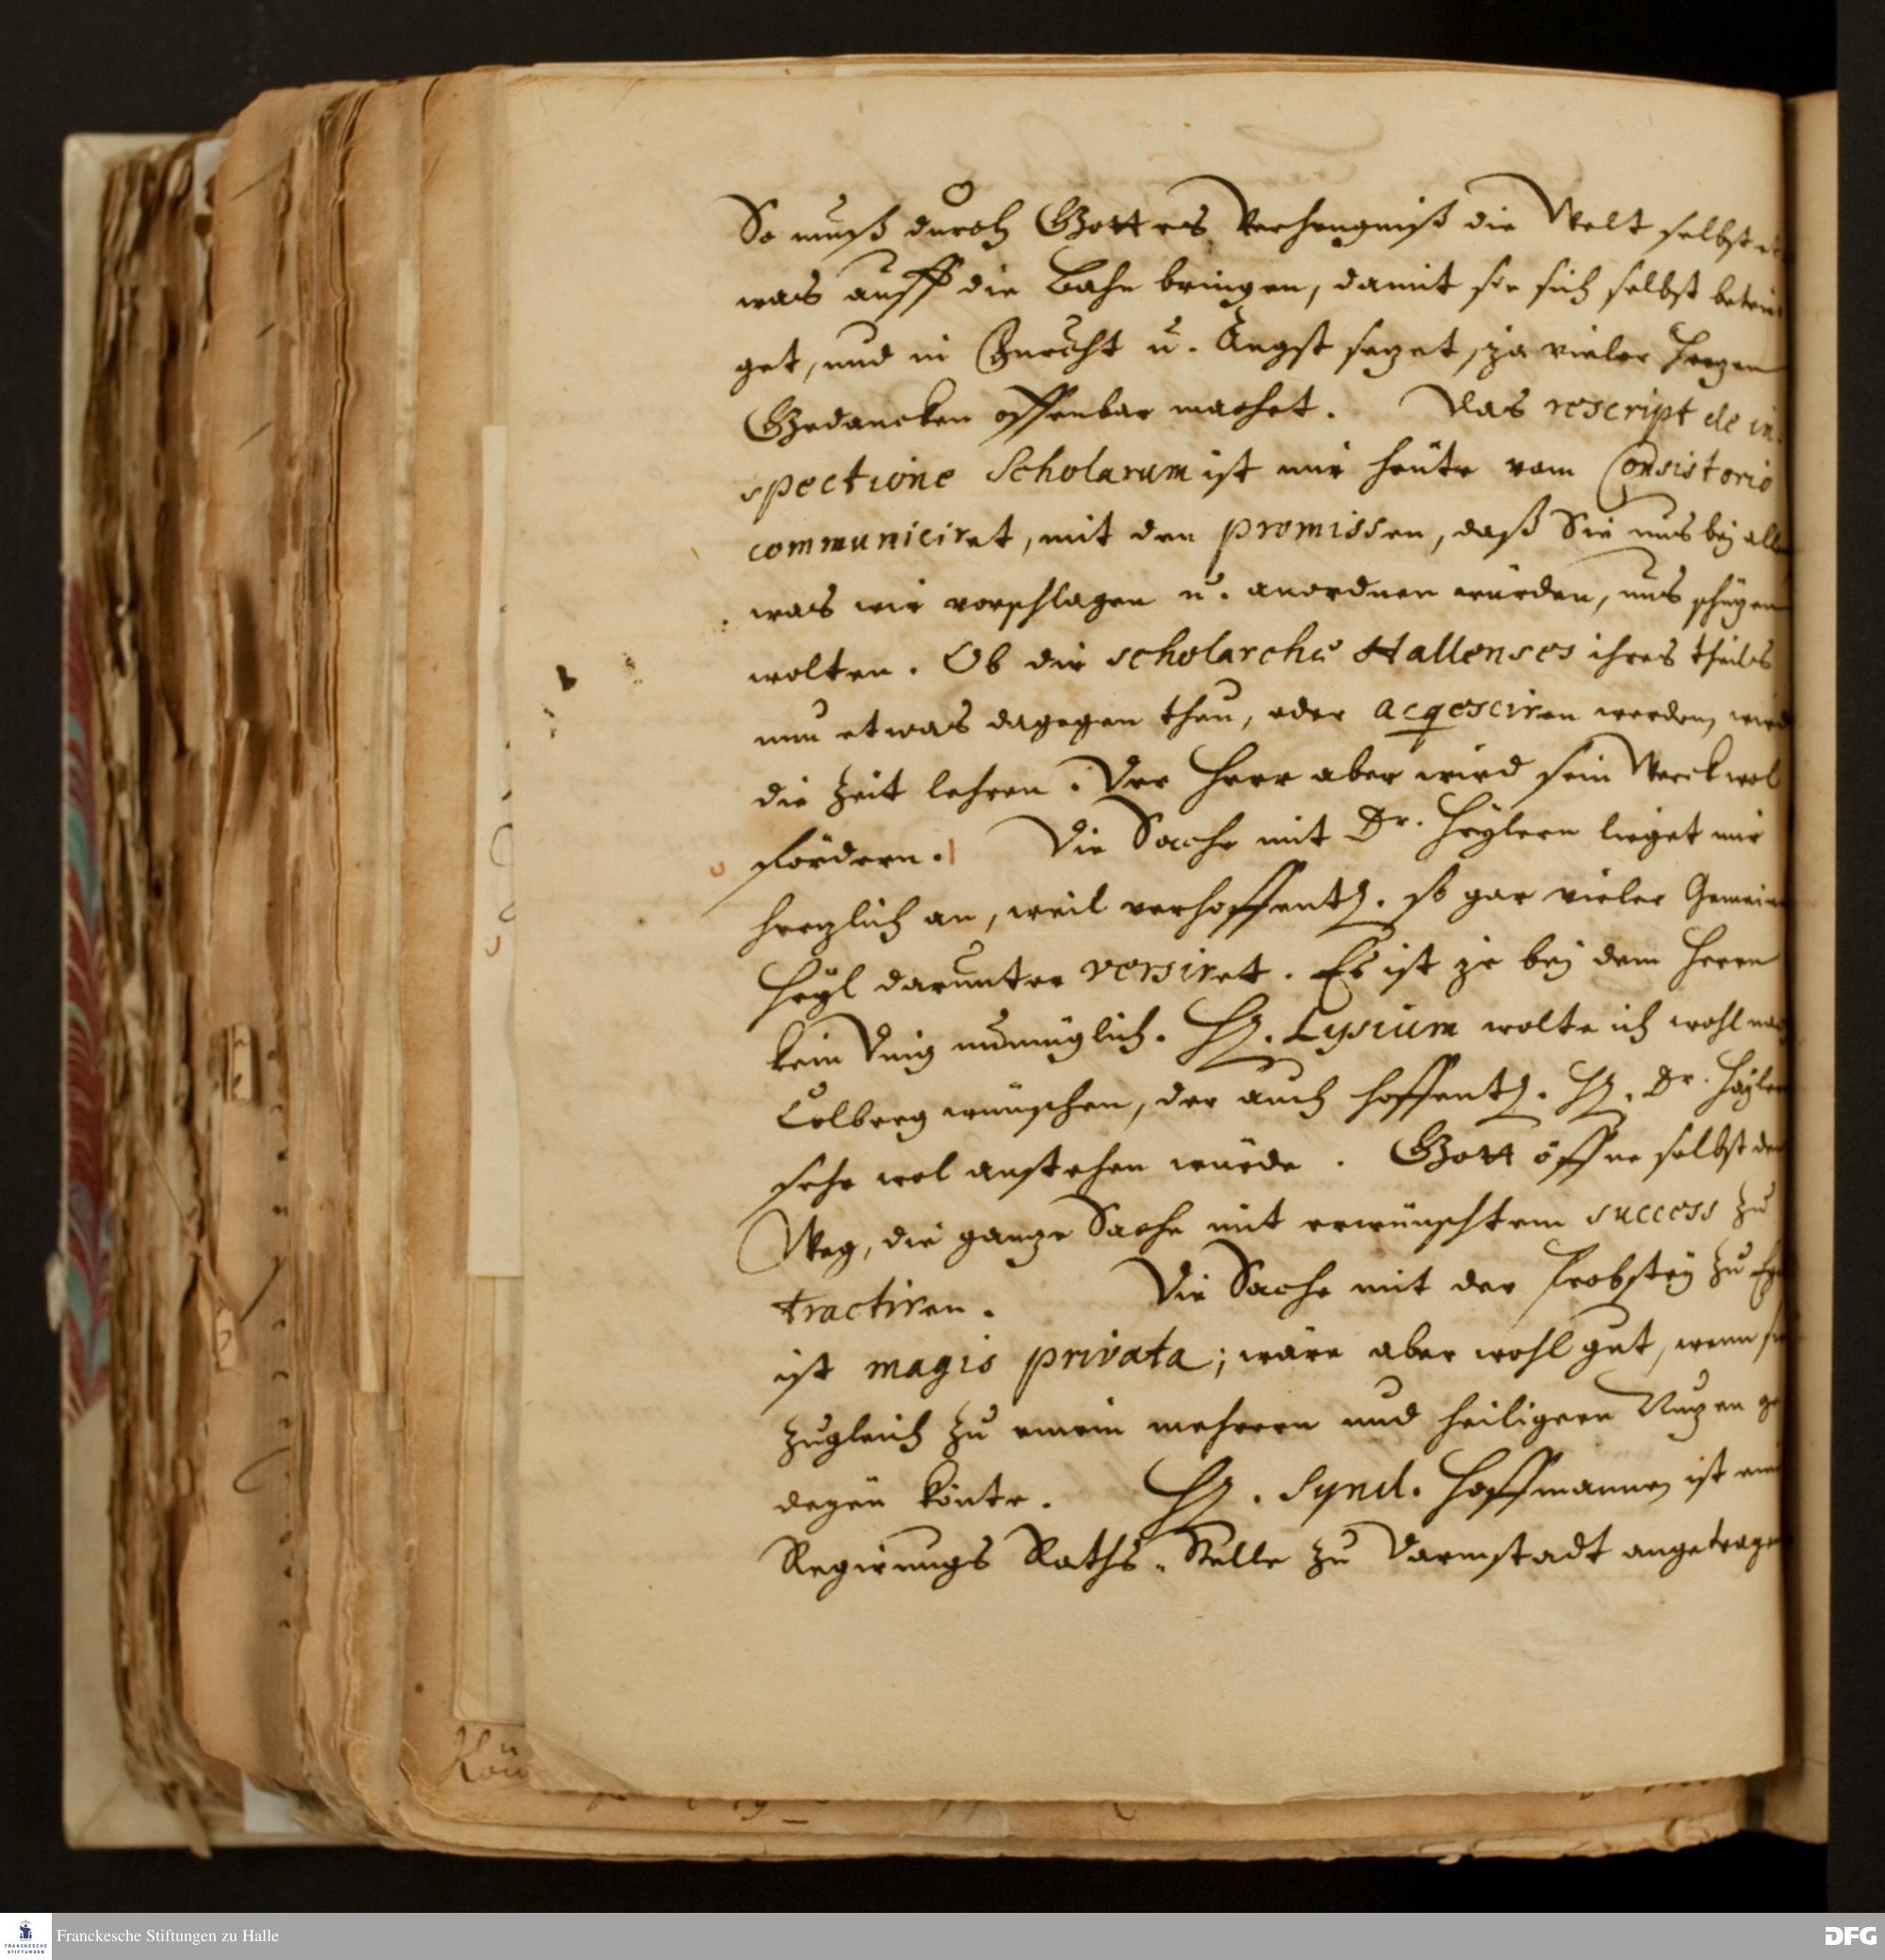 So muß durch Gottes Verhengniß die Welt selbst et
was auff die Bahn bringen, damit sie sich selbst betrü
get, und in Furcht u. Angst sezet, ja vieler Herzen
Gedancken offenbar machet. Das rescript de in
spectione Scholarum ist mir heute vom Consistorio
communiciret, mit den promissen, daß Sie uns bey allem
was wir vorschlagen u. anordnen würden, uns schüzen
wolten. Ob die scholarchæ Hallenses ihres theils
nun etwas dagegen thun, oder acqesciren werden, wird
die Zeit lehren. Der Herr aber wird sein Werck wol
fördern. Die Sache mit Dr. Heylern lieget mir
herzlich an, weil verhoffentl. so gar vieler Gemein
Heyl darunter versiret. Es ist je bey dem Herrn
kein Ding unmüglich. H. Lysium wolte ich wohl nach
Colberg wünschen, der auch hoffentl. H. Dr. Heylern
sehr wol anstehen würde. Gott öffne selbst den
Weg, die ganze Sache mit erwünschtem success zu
tractiren. Die Sache mit der Probstey zu
ist magis privata; wäre aber wohl gut, wenn sie
zugleich zu einem mehrern und heiligern Nuzen ge
deyen könte. H. Synd. Hoffmannen ist eine
Regirungs Raths-Stelle zu Darmstadt angetragen
Franckesche Stiftungen zu Halle
FRANCKESCHE STIFTUNGEN
DFG